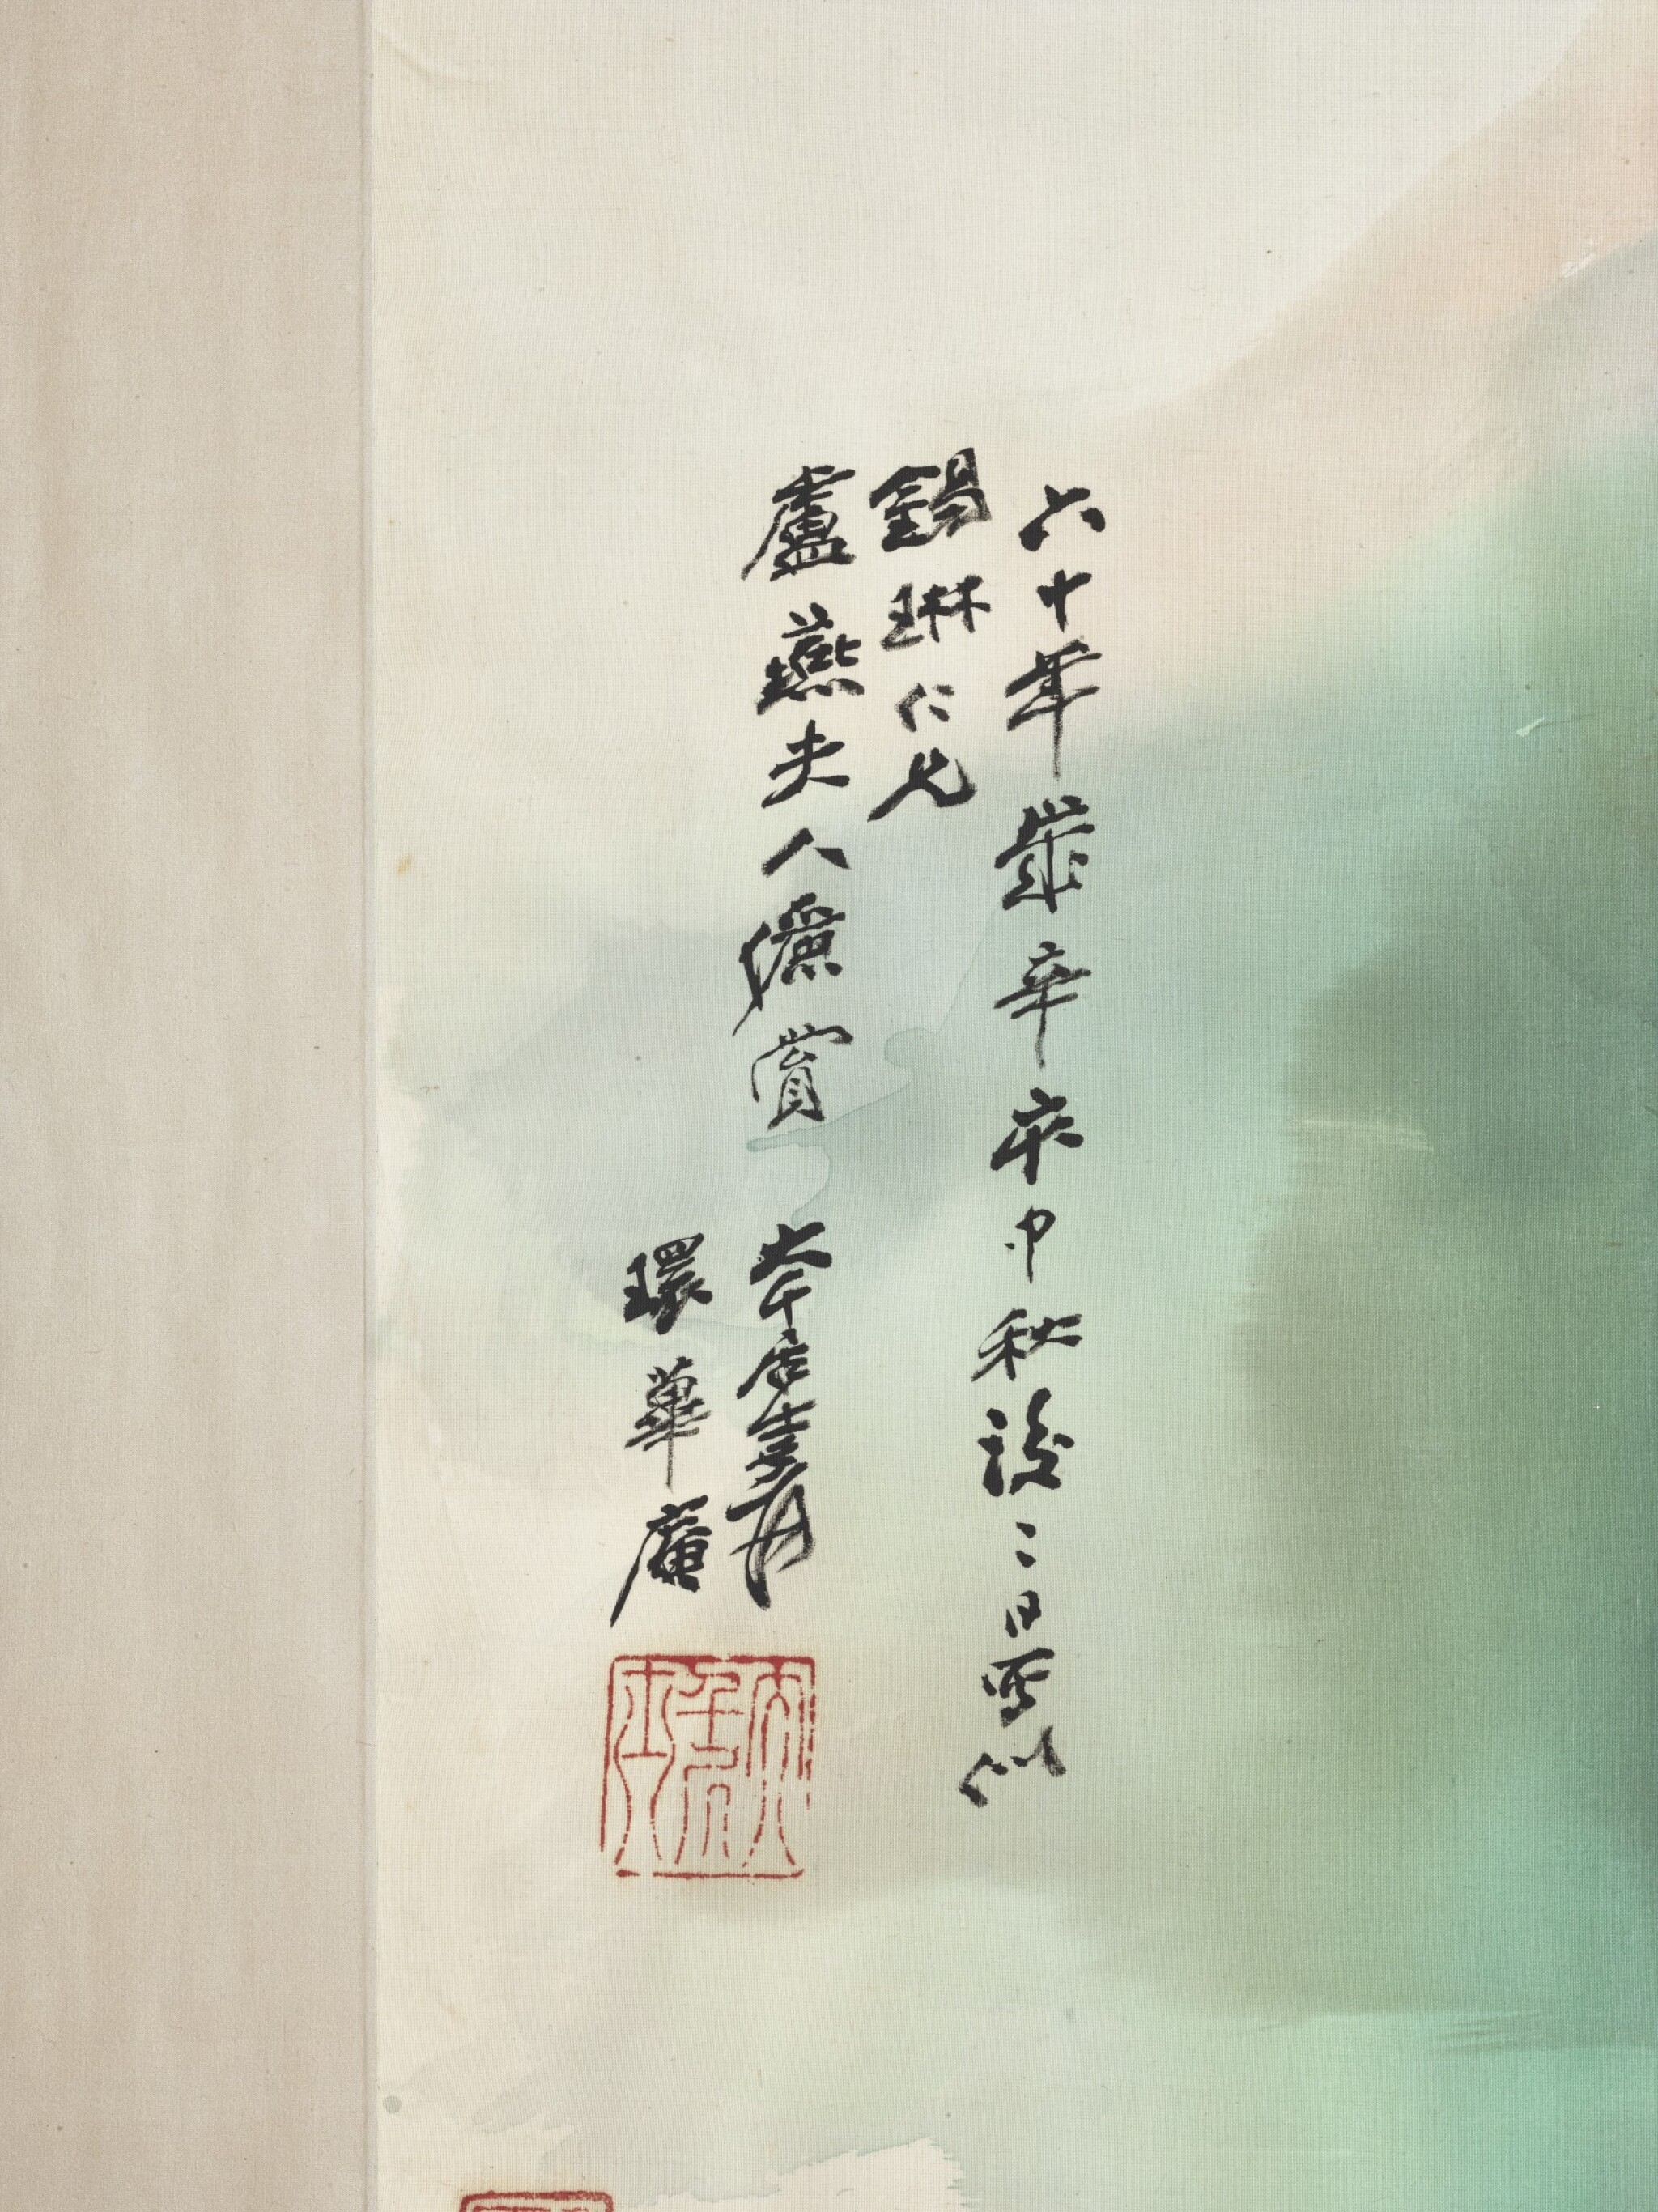 六十年歲辛亥中秋後二日寫似
錫琳仁兄
盧燕夫人儷賞 大千居士爰
環蓽庵